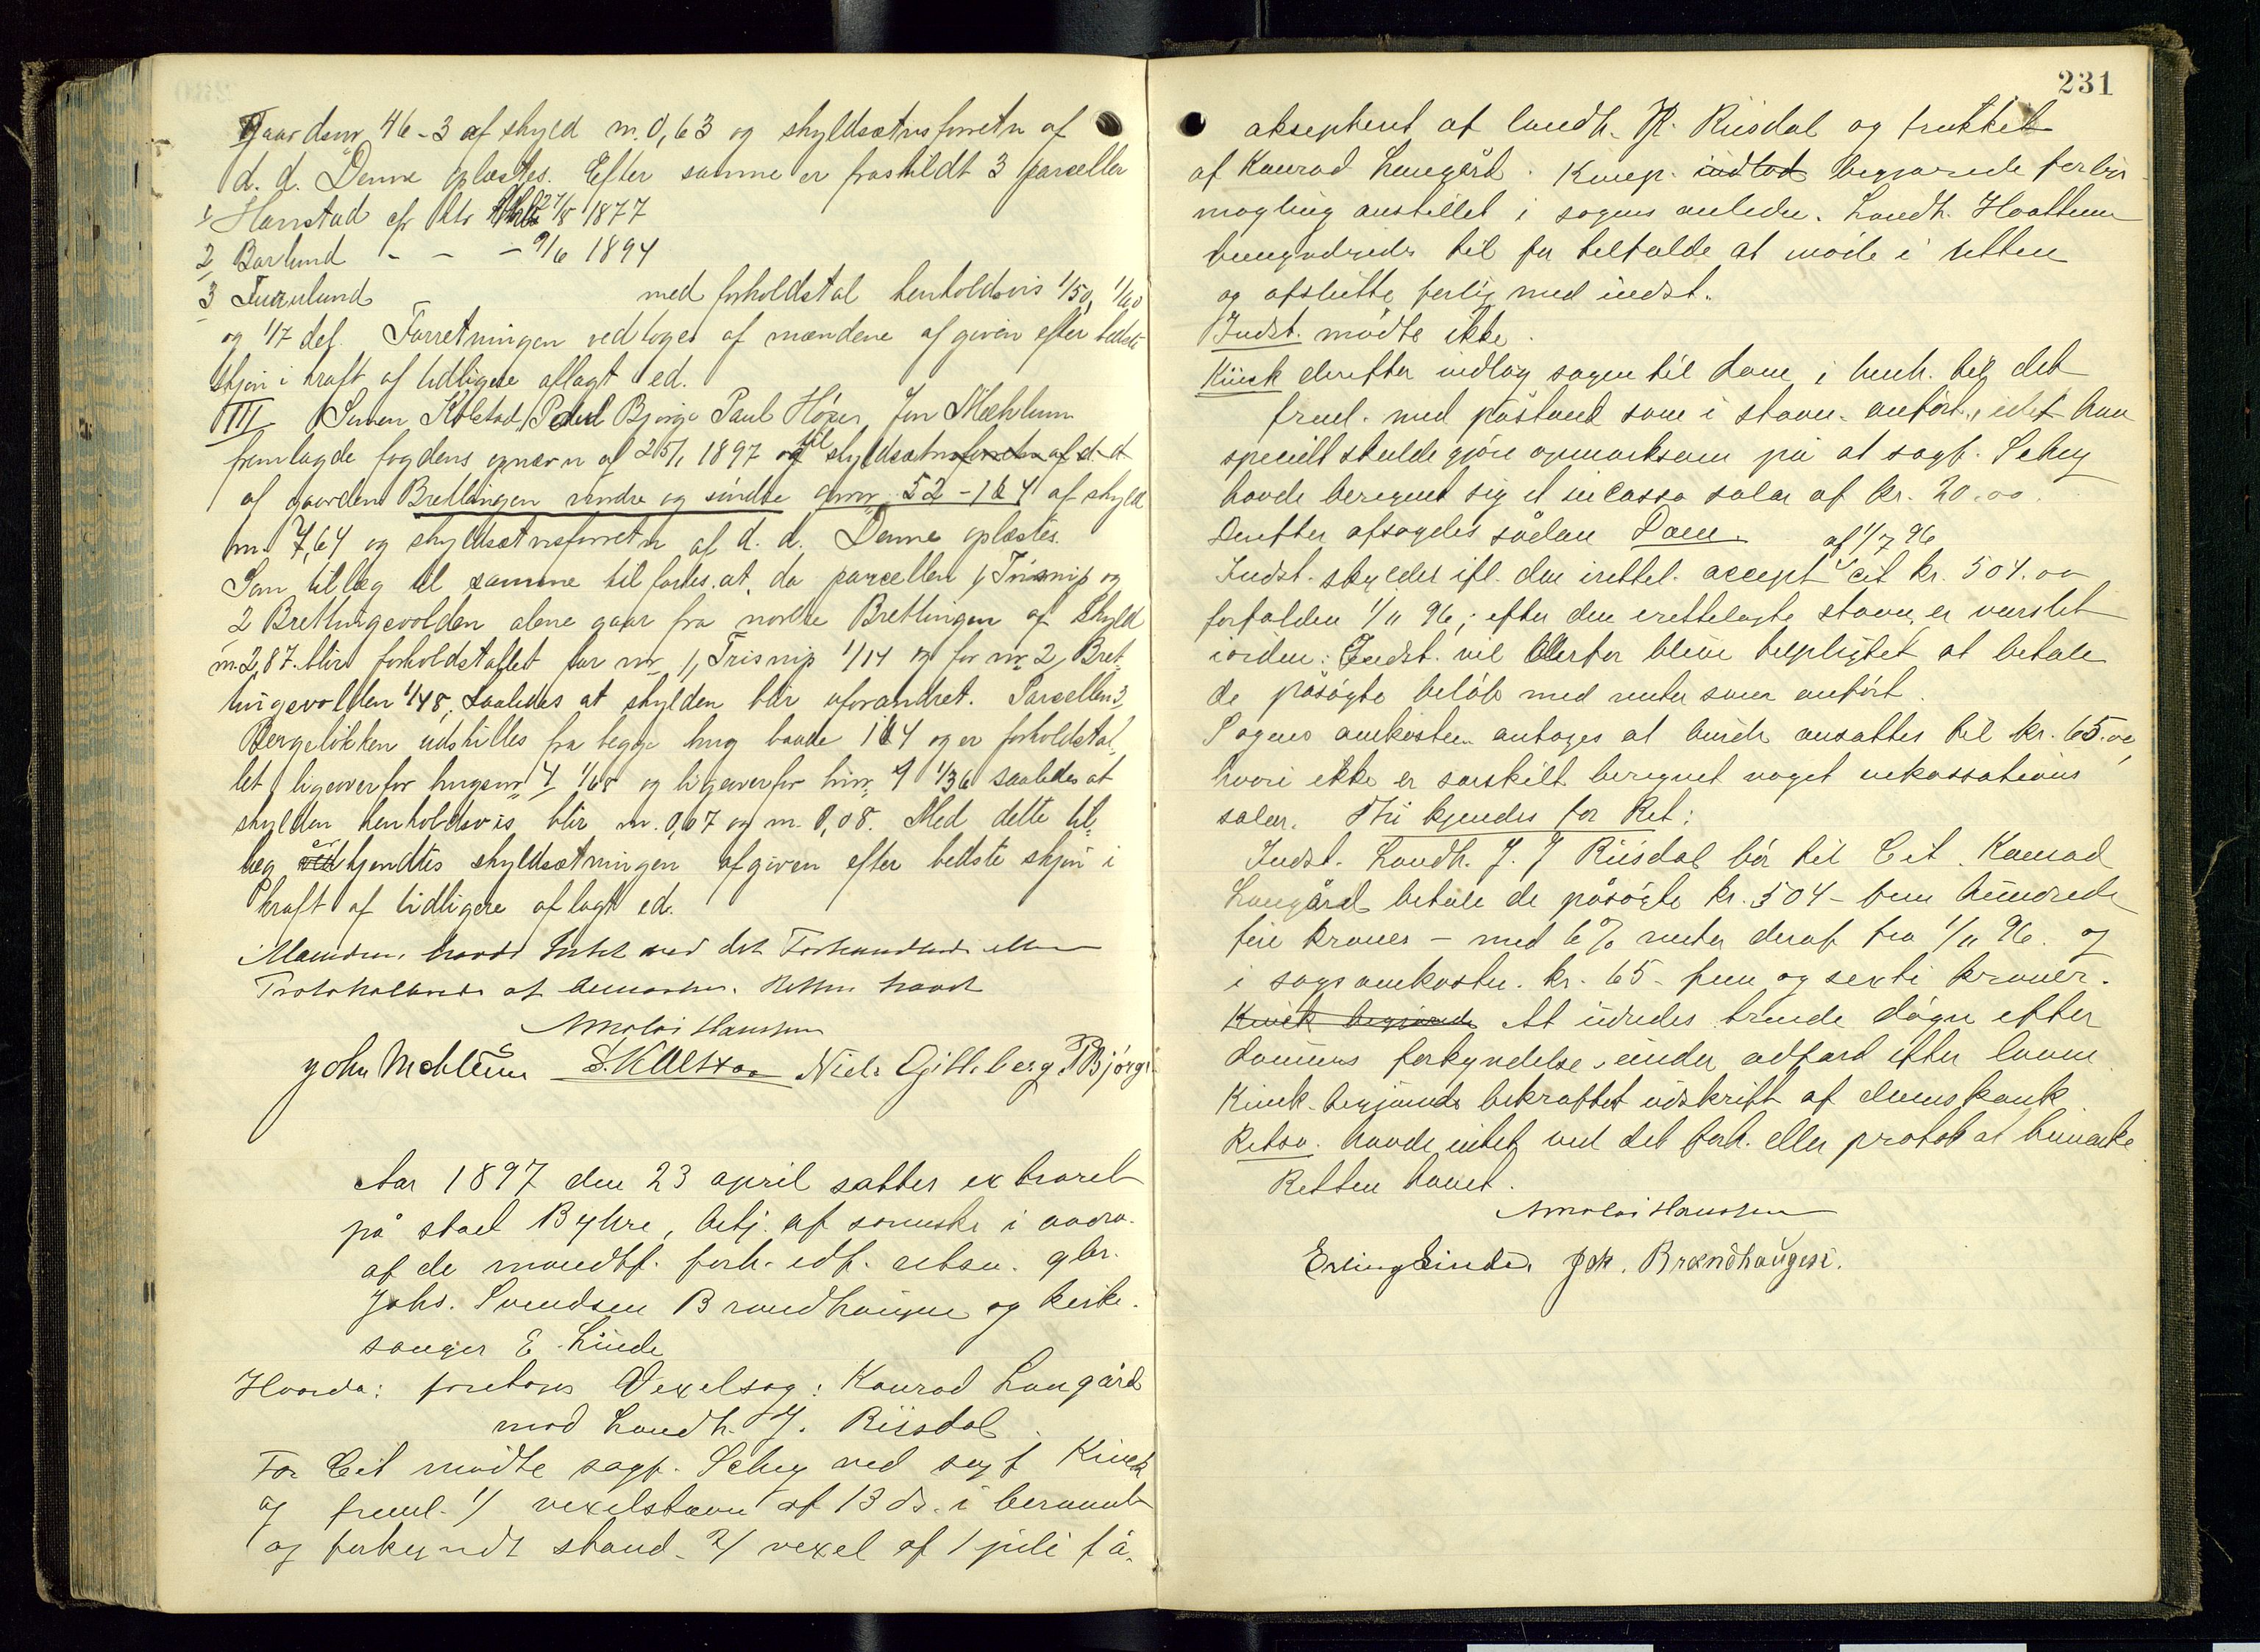 Gaardsnr. 46-3 af skyld m. 0,63 og skyldsætnsforretn af
d. d. Denne oplæstes. Efter samme er fraskildt 3 parceller
1 Hanstad efr 27/8 1877
2 Barlund - - - 9/6 1894
3 med forholdstal henholdsvis 1/50, 1/60
og 1/7 del. Forretningen vedtoges af mændene afgiven efter bedste
skjøn i kraft af tidligere aflagt ed.
III Simen Kolstad, Bjørge Paul Jon Mæhlum
fremlagde fogdens opnævn af 25/1 1897 til skyldsætnsforretn af d. d.
af gaarden Brettingen nordre og søndre gnr. 52 - 1 4 af skyld
m. 7,64 og skyldsætnsforretn af d. d. Denne oplæstes.
Som tillæg til samme tilføies at da parcellen 1, Trisnip og
2 Brettingevolden alene gaar fra nordre Brettingen af Skyld
m. 2,87. blir forholdstallet for nr 1, Trisnip 1/14 og for nr 2, Bret-
tingevolden 1/48, saaledes at skylden blir uforandret. Parcellen 3,
Bergeløkken udskilles fra begge brug baade 1 4 og er forholdstal-
let ligeoverfor brugsnr 1/68 og ligeoverfor brnr. 4 1/36 saaledes at
skylden henholdsvis blir m. 0,07 og m. 0,08. Med dette til-
læg erkjendtes skyldsætningen afgiven efter bedste skjøn i
kraft af tidligere aflagt ed.
Mændene havde Intet ved det Forhandlede eller
Protokollerede at bemærke. Retten hævet
Nicolai Hanssen
John Mehlum S. Kolstad Niels Gilleberg P Bjørge
Aar 1897 den 23 april sattes extraret
på stael Byhre, betj. af samme i nærv.
af de mundtl. forh. edf. retsv. gbr.
Johs. Svendsen Brændhaugen og kirke-
sanger E. Linde
Hvorda: foretoges Vexelsag: Konrad Langård
mod Landh. J. Riisdal.
For Cit mødte sagf. Schey ved sagf Kinck
og freml. 1/ vexelstævn. af 13 ds. i beramet
og forkyndt stand. 2/ vexel af 1 juli f å.
231
aksepteret af landh. Riisdal og trukket
af Konrad Langård. Komp. indlod begjærede forlig-
mægling anstillet i sagens anledn. Landh. Hoattum
til for tilfælde at møde i retten
og afslutte forlig med indst.
Indst. mødte ikke.
Kinck derefter indlog sagen til dom i henh. til det
freml. med påstand som i stævn. anført, idet han
specielt skulde gjøre opmærksom på at sagf. Schey
havde beregnet sig et incasso salær af kr. 20.00.
Derefter afsagdes sådan Dom
Indst. skylder ifl. den irettel. accept af 1/7 96 cit kr. 504.00
forfalden 1/11 96; efter den irettelagte stævn, er varslet
i orden: Indst. vil derfor blive tilpligtet at betale
de påsøgte beløb med renter som anført.
Sagens omkostn. antages at burde ansættes til kr. 65.00,
hvori ikke er særskilt beregnet noget inkassations
salær. Thi kjendes for Ret:
Indst. Landh. J. J Riisdal bør til Cit. Konrad
Langård betale de påsøgte kr. 504 - fem hundrede
fire kroner - med 6 % renter deraf fra 1/11 96. og
i sagsomkostn. kr. 65 - fem og sexti kroner.
Kinck begjærede At udredes trende døgn efter
dommens forkyndelse under adfærd efter loven
Kinck begjærede bekræftet udskrift af domsbank
Retsv. havde intet ved det forh. eller protok at bemærke
Retten hævet.
Nicolai Hanssen
Erling Linde. Joh. Brændhaugen.